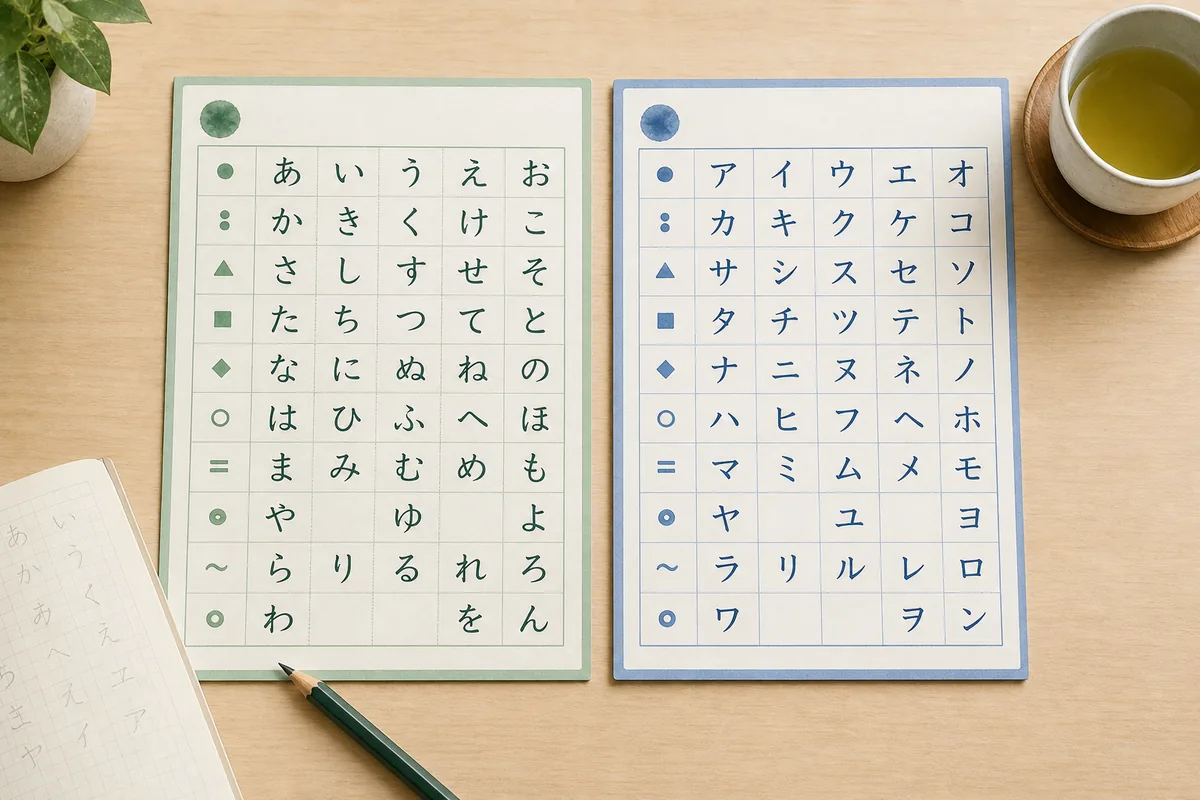 あ い う え お
か き く け こ
さ し す せ そ
た ち つ て と
な に ぬ ね の
は ひ ふ へ ほ
ま み む め も
や ゆ よ
ら り る れ ろ
わ を ん
ア イ ウ エ オ
カ キ ク ケ コ
サ シ ス セ ソ
タ チ ツ テ ト
ナ ニ ヌ ネ ノ
ハ ヒ フ ヘ ホ
マ ミ ム メ モ
ヤ ユ ヨ
ラ リ ル レ ロ
ワ ヲ ン
あ い
か う
あ く
へ え
え エ
イ ア
ヤ